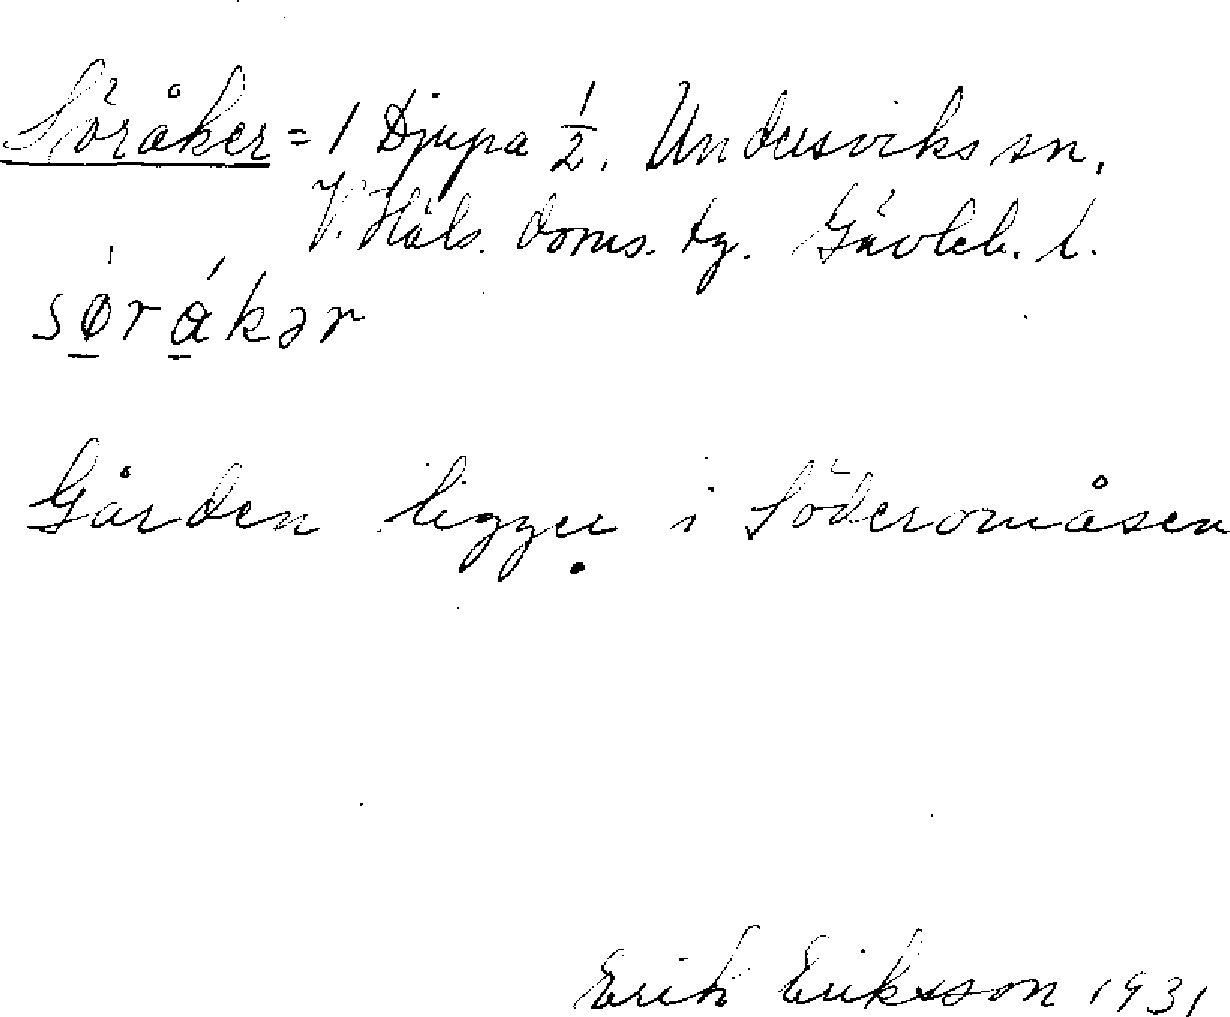 Söråker = 1 Djupa 1/2. Undersviks sn.
V. Häls. doms. tg. Gävleb. l.
sǿrákər
Gården ligger i Söderomåsen
Erik Eriksson 1931